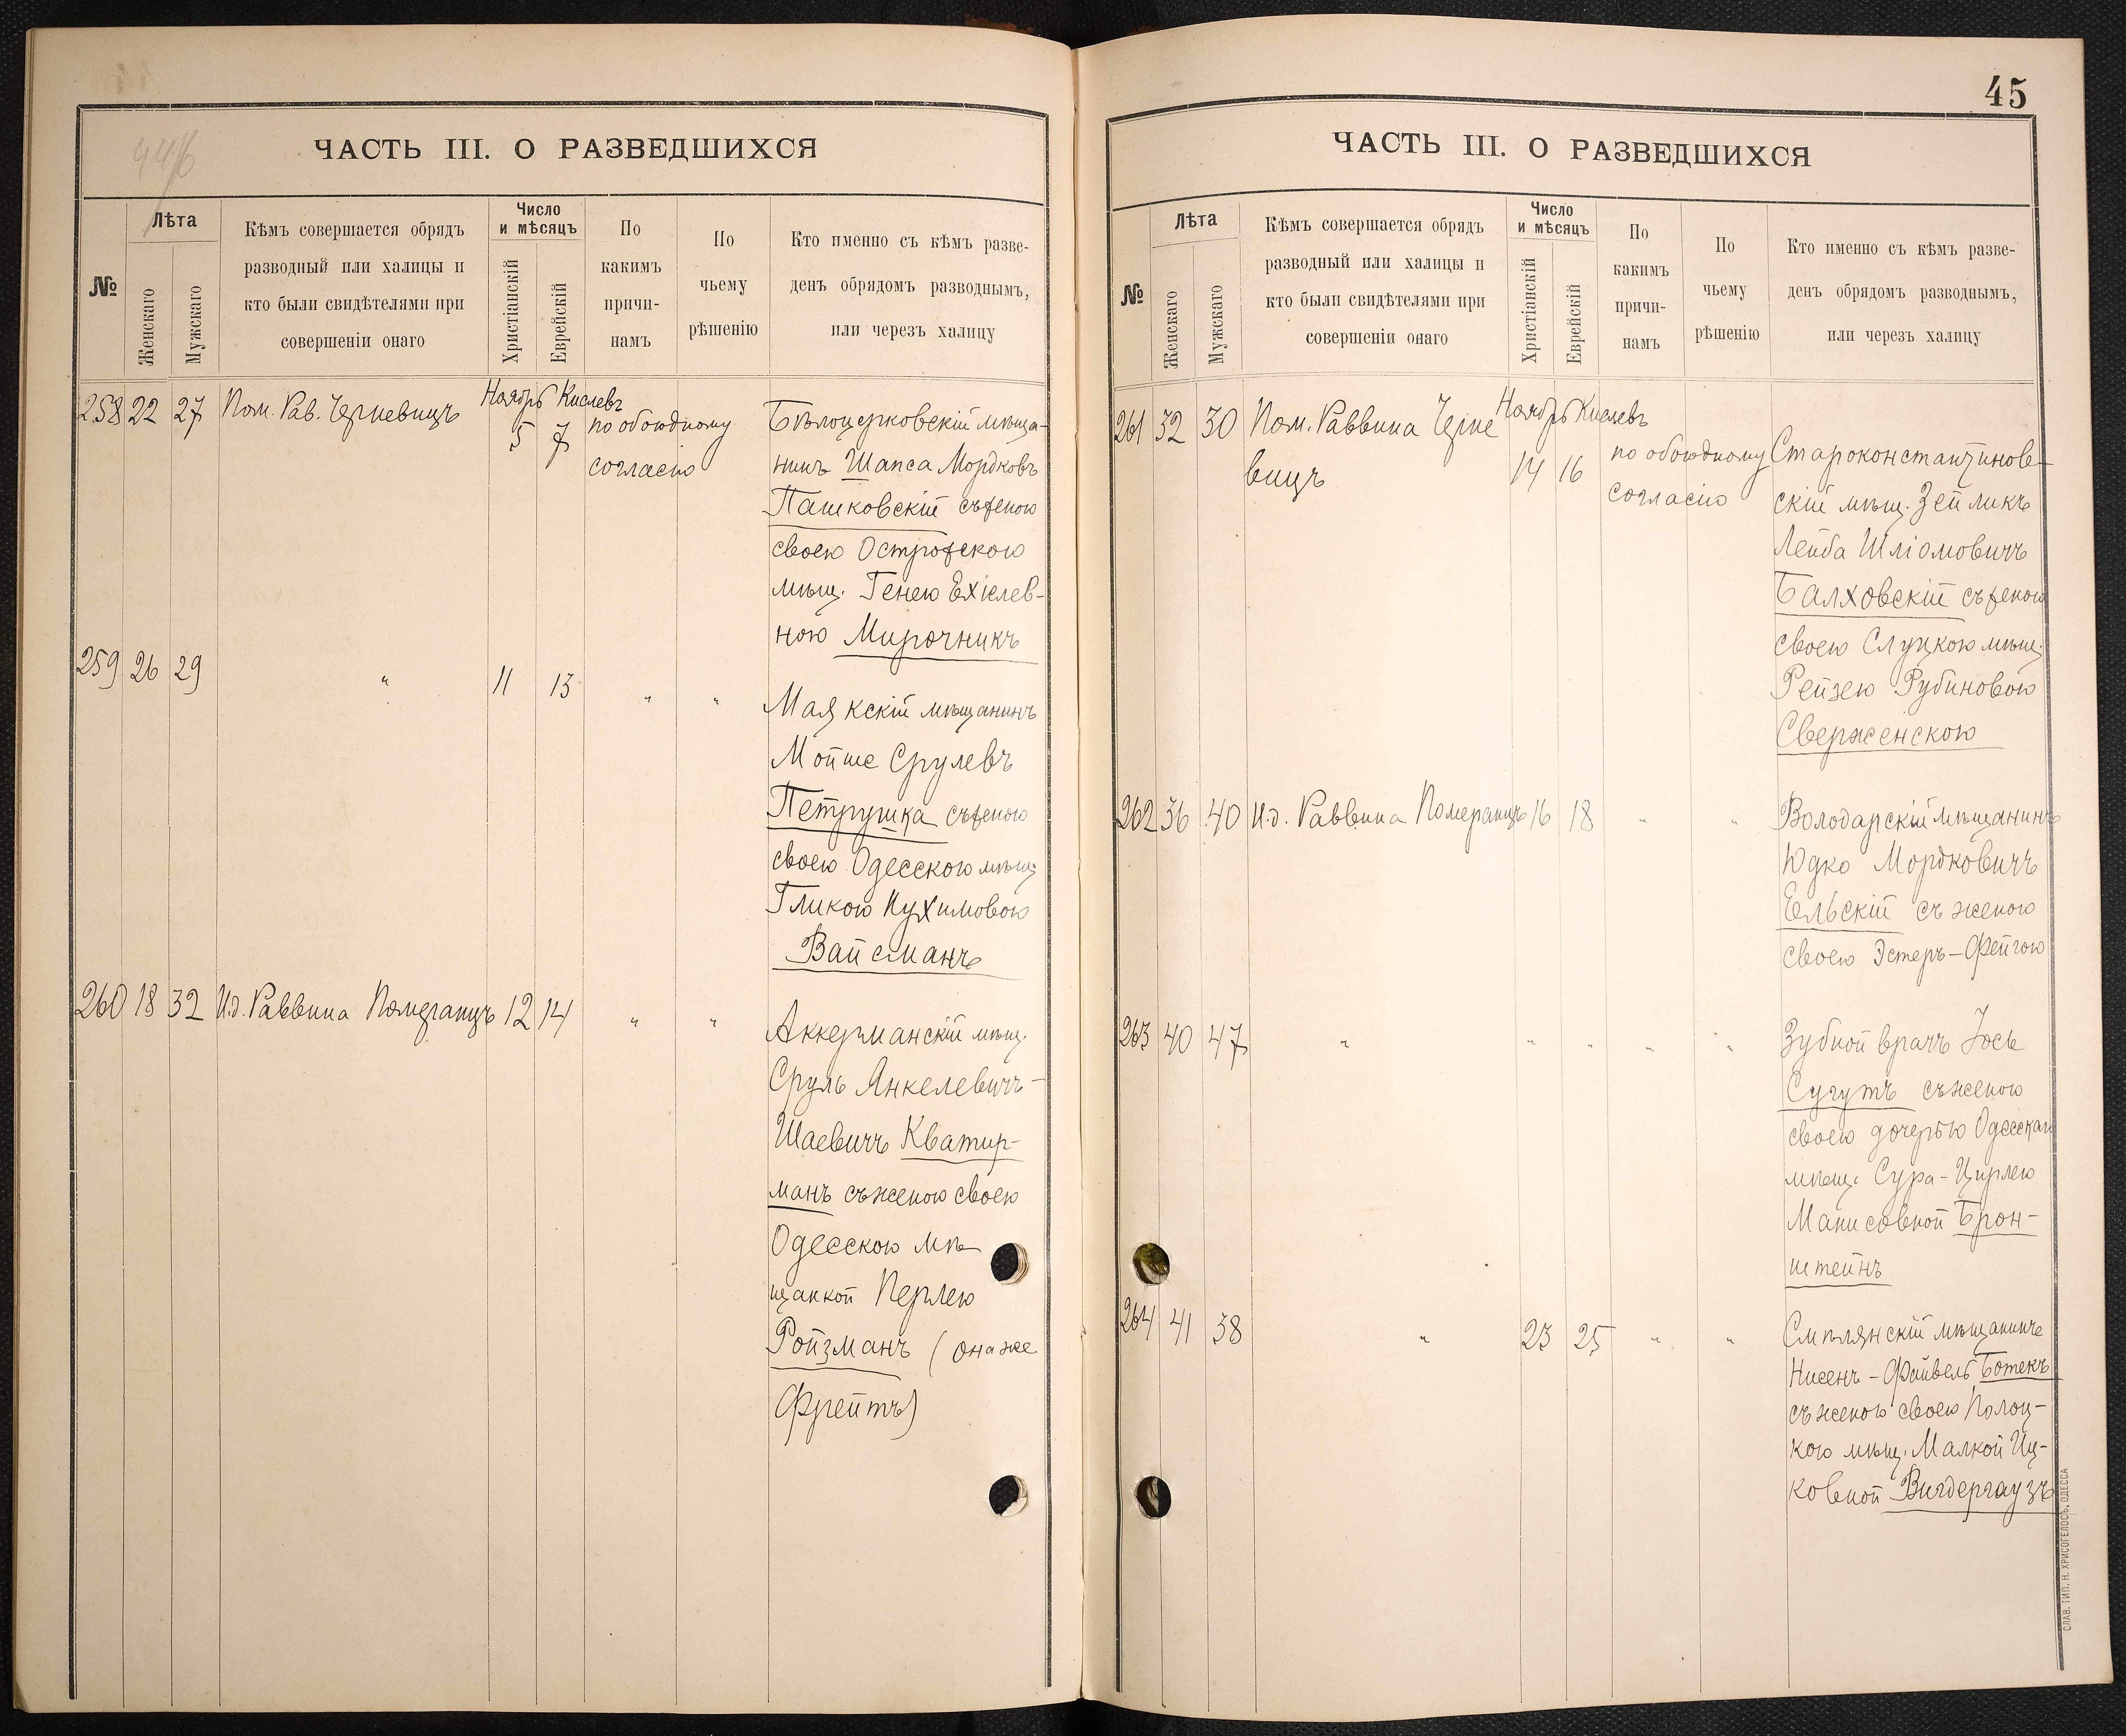 ЧАСТЬ III. О РАЗВЕДШИХСЯ
№
Лѣта
Женскаго
Мужскаго
Кѣмъ совершается обрядъ
разводный или халицы и
кто были свидѣтелями при
совершеніи онаго
Число
и мѣсяцъ
Христіанскій
Еврейскій
По
какимъ
причи-
намъ
По
чьему
рѣшенію
Кто именно съ кѣмъ разве-
денъ обрядомъ разводнымъ,
или черезъ халицу
258 22 27 Пом. Рав. Черневицъ
Ноябрь Кислевъ
5 7
по обоюдному
согласію
Бѣлоцерковскій мѣща-
нинъ Шапса Мордковъ
Пашковскій съ женою
своею Острожскою
мѣщ. Генею Ехіелев-
ною Мирочникъ
259 26 29 " 11 13 " "
Маякскій мѣщанинъ
Мойше Срулевъ
Петрушка съ женою
своею Одесскою мѣщ.
Гликою Нухимовою
Вайсманъ
260 18 32 И.д. Раввина Померанцъ 12 14 " "
Аккерманскій мѣщ.
Сруль Янкелевичъ-
Шаевичъ Кватир-
манъ съ женою своею
Одесскою мѣ-
щанкой Перлею
Ройзманъ (она же
Фрейтъ)
45
ЧАСТЬ III. О РАЗВЕДШИХСЯ
№
Лѣта
Женскаго
Мужскаго
Кѣмъ совершается обрядъ
разводный или халицы и
кто были свидѣтелями при
совершеніи онаго
Число
и мѣсяцъ
Христіанскій
Еврейскій
По
какимъ
причи-
намъ
По
чьему
рѣшенію
Кто именно съ кѣмъ разве-
денъ обрядомъ разводнымъ,
или черезъ халицу
261 32 30 Пом. Раввина Черне
вицъ
Ноябрь Кислевъ
14 16
по обоюдному
согласію
Староконстантинов-
скій мѣщ. Зейликъ
Лейба Шліомовичъ
Балховскій съ женою
своею Слуцкою мѣщ.
Рейзею Рубиновою
Сверженскою
262 36 40 И.д. Раввина Померанцъ 16 18 " "
Володарскій мѣщанинъ
Юдко Мордковичъ
Ельскій съ женою
своею Эстеръ-Фейгою
263 40 47 " " " " "
Зубной врачъ Іось
Сугутъ съ женою
своею дочерью Одесскаго
мѣщ. Сура-Цирлею
Манисовной Брон-
штейнъ
264 41 38 " 23 25 " "
Смѣлянскій мѣщанинъ
Нисенъ-Файвель Ботекъ
съ женою своею Полоц-
кою мѣщ. Малкой Иц-
ковной Вигдергаузъ
СЛАВ. ТИП. Н. ХРИСОГЕЛОСЪ, ОДЕССА